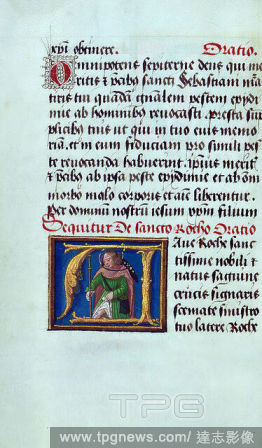 xpi obtinere. Oratio.
Omnipotens sepiterne deus qui me
ritis et precibo sancti Sebastiani mar
tiris tui quandam generalem pestem epydi
mie ab hominibo revocasti. presta sup
plicibo tuis ut qui in tuo eius memo
riam et in eum fiduciam pro simili pes
te revocanda habuerint. ipsius meritis
et precibo ab ipsa peste epydimie et ab omni
morbo malo corporis et aie liberentur.
Per dominum nostrum iesum xpum filium
Sequitur De sancto Rocho Oratio
Aue Roche sanc
tissime nobili
natus sanguine
crucis signaris
scemate sinistro
tuo latere Roche
TPG
www.tpgnews.com 達志影像